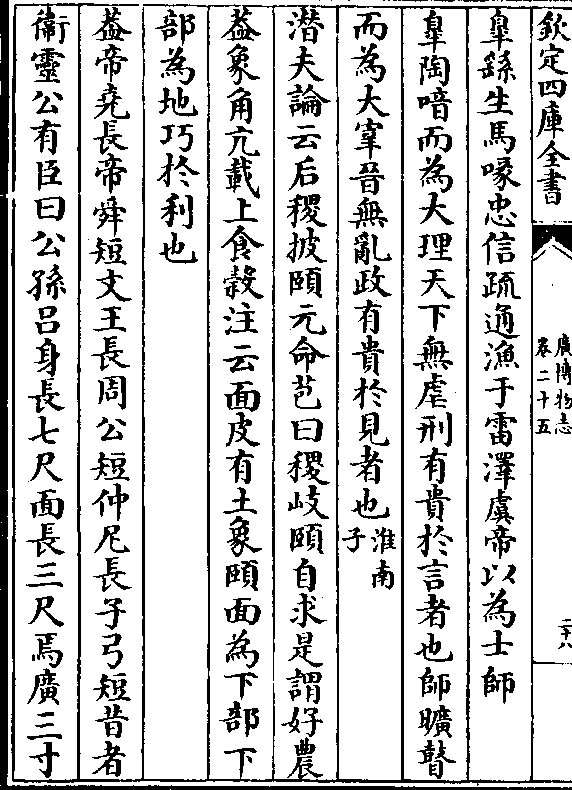 欽定四庫全書
廣博物志
卷二十五
二十八
皐繇生馬喙忠信疏通漁于雷澤虞帝以為士師
皐陶喑而為大理天下無虐刑有貴於言者也師曠瞽
而為大宰晉無亂政有貴於見者也淮南子
潜夫論云后稷披頤元命苞曰稷岐頤自求是謂好農
葢象角亢載上食榖注云面皮有土象頤面為下部下
部為地巧於利也
葢帝堯長帝舜短文王長周公短仲尼長子弓短昔者
衛靈公有臣曰公孫吕身長七尺面長三尺焉廣三寸